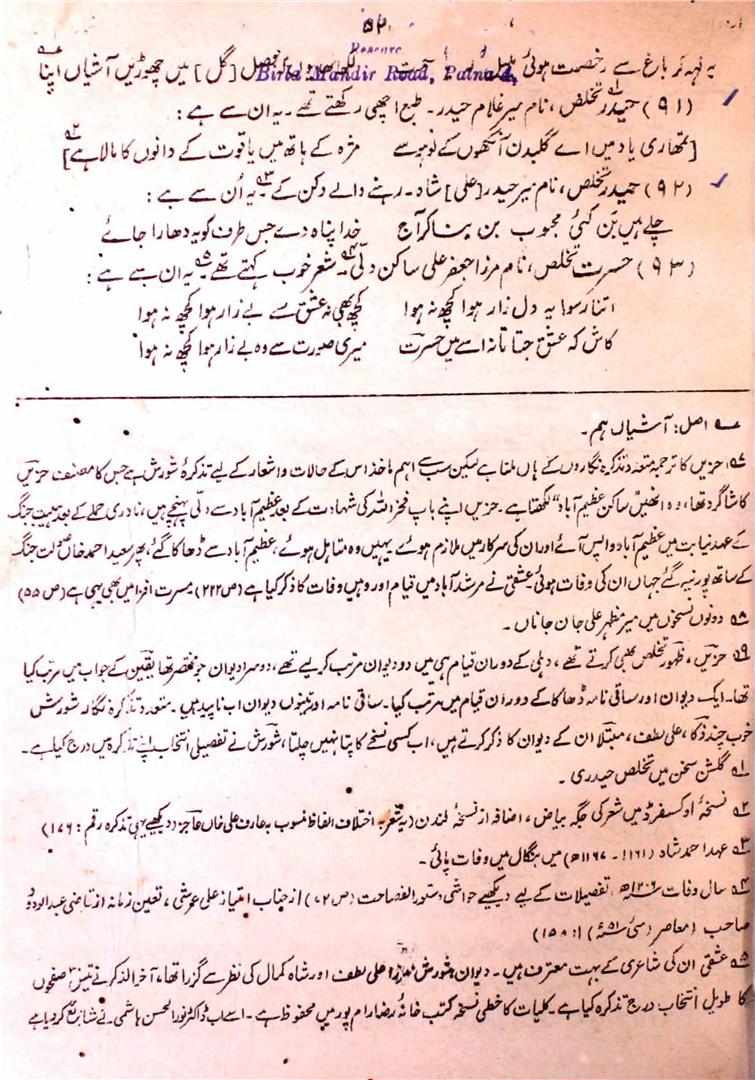 ۵۲
Research
Birla Mandir Road, Patna 4,
یہ کہہ کر باغ سے رخصت ہوئی بلبل [گل] میں چھوڑیں آشیاں اپنا
(۹۱) حیدر تخلص، نام میر غلام حیدر۔ طبع اچھی رکھتے تھے۔ یہ ان سے ہے:
[تمھاری یاد میں اے گلبدن آنکھوں کے لوہو سے مژہ کے ہاتھ میں یاقوت کے دانوں کا مالا ہے]
(۹۲) حیدر تخلص، نام میر حیدر [علی] شاہ۔ رہنے والے دکن کے۔ یہ اُن سے ہے:
چلے ہیں بَن کئی محبوب بن بنا کر آج خدا پناہ دے جس طرف کو یہ دھارا جائے
(۹۳) حسرت تخلص، نام مرزا جعفر علی ساکن دلی۔ شعر خوب کہتے تھے۔ یہ ان سے ہے:
اتنا رسوا یہ دل زار ہوا کچھ نہ ہوا کچھ بھی نہ عشق سے بے زار ہوا کچھ نہ ہوا
کاش کہ عشق جتاتا نہ اسے میں حسرت میری صورت سے وہ بے زار ہوا کچھ نہ ہوا
۶ اصل: آشیاں ہم۔
۷ حزیں کا ترجمہ متعدد تذکرہ نگاروں کے ہاں ملتا ہے لیکن سب سے اہم ماخذ اس کے حالات و اشعار کے لیے تذکرۂ شورش ہے جس کا مصنف حزیں
کا شاگرد تھا، وہ انھیں "ساکن عظیم آباد" لکھتا ہے۔ حزیں اپنے باپ فخر اللہ کی شہادت کے بعد عظیم آباد سے دلی پہنچے ہیں، نادری حملے کے بعد ہیبت جنگ
کے عہد نیابت میں عظیم آباد واپس آئے اور ان کی سرکار میں ملازم ہوئے یہیں وہ متاہل ہوئے، عظیم آباد سے ڈھاکا گئے، پھر سعید احمد خاں صولت جنگ
کے ساتھ پورنیہ گئے جہاں ان کی وفات ہوئی۔ عشقی نے مرشد آباد میں قیام اور وہیں وفات کا ذکر کیا ہے (ص ۲۲۲) مسرت افزا میں بھی یہی ہے (ص ۵۵)
۸ دونوں نسخوں میں میرز مظہر علی جان جاناں۔
۹ حزیں، ظہور تخلص بھی کرتے تھے، دہلی کے دوران قیام ہی میں دو دیوان مرتب کر لیے تھے، دوسرا دیوان جو مختصر تھا یقین کے جواب میں مرتب کیا
تھا۔ ایک دیوان اور ساقی نامہ ڈھاکا کے دوران قیام میں مرتب کیا۔ ساقی نامہ اور تینوں دیوان اب ناپید ہیں۔ متعدد تذکرہ نگار شورش
خوب چند ذکا، علی لطف، مبتلا ان کے دیوان کا ذکر کرتے ہیں، اب کسی نسخے کا پتا نہیں چلتا، شورش نے تفصیلی انتخاب اپنے تذکرہ میں درج کیا ہے۔
۱ گلشن سخن میں تخلص حیدری۔
۲ نسخۂ اوکسفرڈ میں شعر کی جگہ بیاض، اضافہ از نسخۂ لندن (یہ شعر بہ اختلاف الفاظ منسوب بہ عارف علی خاں عاجز دیکھیے یہی تذکرہ رقم: ۱۷۶)
۳ عہد احمد شاہ (۱۱۶۱ - ۱۱۶۷ھ) میں بنگال میں وفات پائی۔
۴ سال وفات ۱۲۰۶ھ تفصیلات کے لیے دیکھیے حواشی دستور الفصاحت (ص ۷۲) از جناب امتیاز علی عرشی، تعین زمانہ از قاضی عبدالودود
صاحب (معاصر (مئی ۵۱ء) ا: ۱۵۸)
۵ عشقی ان کی شاعری کے بہت معترف ہیں۔ دیوان شورش میرزا علی لطف اور شاہ کمال کی نظر سے گزرا تھا، آخر الذکر نے صفحوں
کا طویل انتخاب درج تذکرہ کیا ہے۔ کلیات کا خطی نسخہ کتب خانۂ رضا رام پور میں محفوظ ہے۔ اسے اب ڈاکٹر نور الحسن ہاشمی نے شایع کر دیا ہے